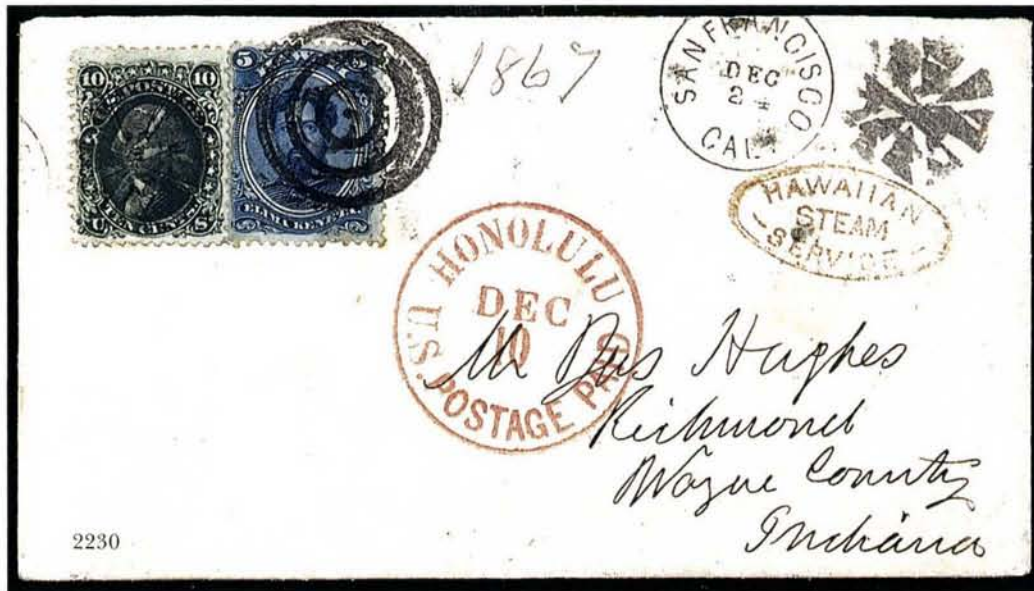 10 10
U.S. POSTAGE
TEN CENTS
U S
5
ELIMA KENETA
1867
SAN FRANCISCO
DEC
24
CAL.
HAWAIIAN
STEAM
SERVICE
HONOLULU
DEC
10
U.S. POSTAGE PAID
Hughes
Richmond
Wayne County
Indiana
2230